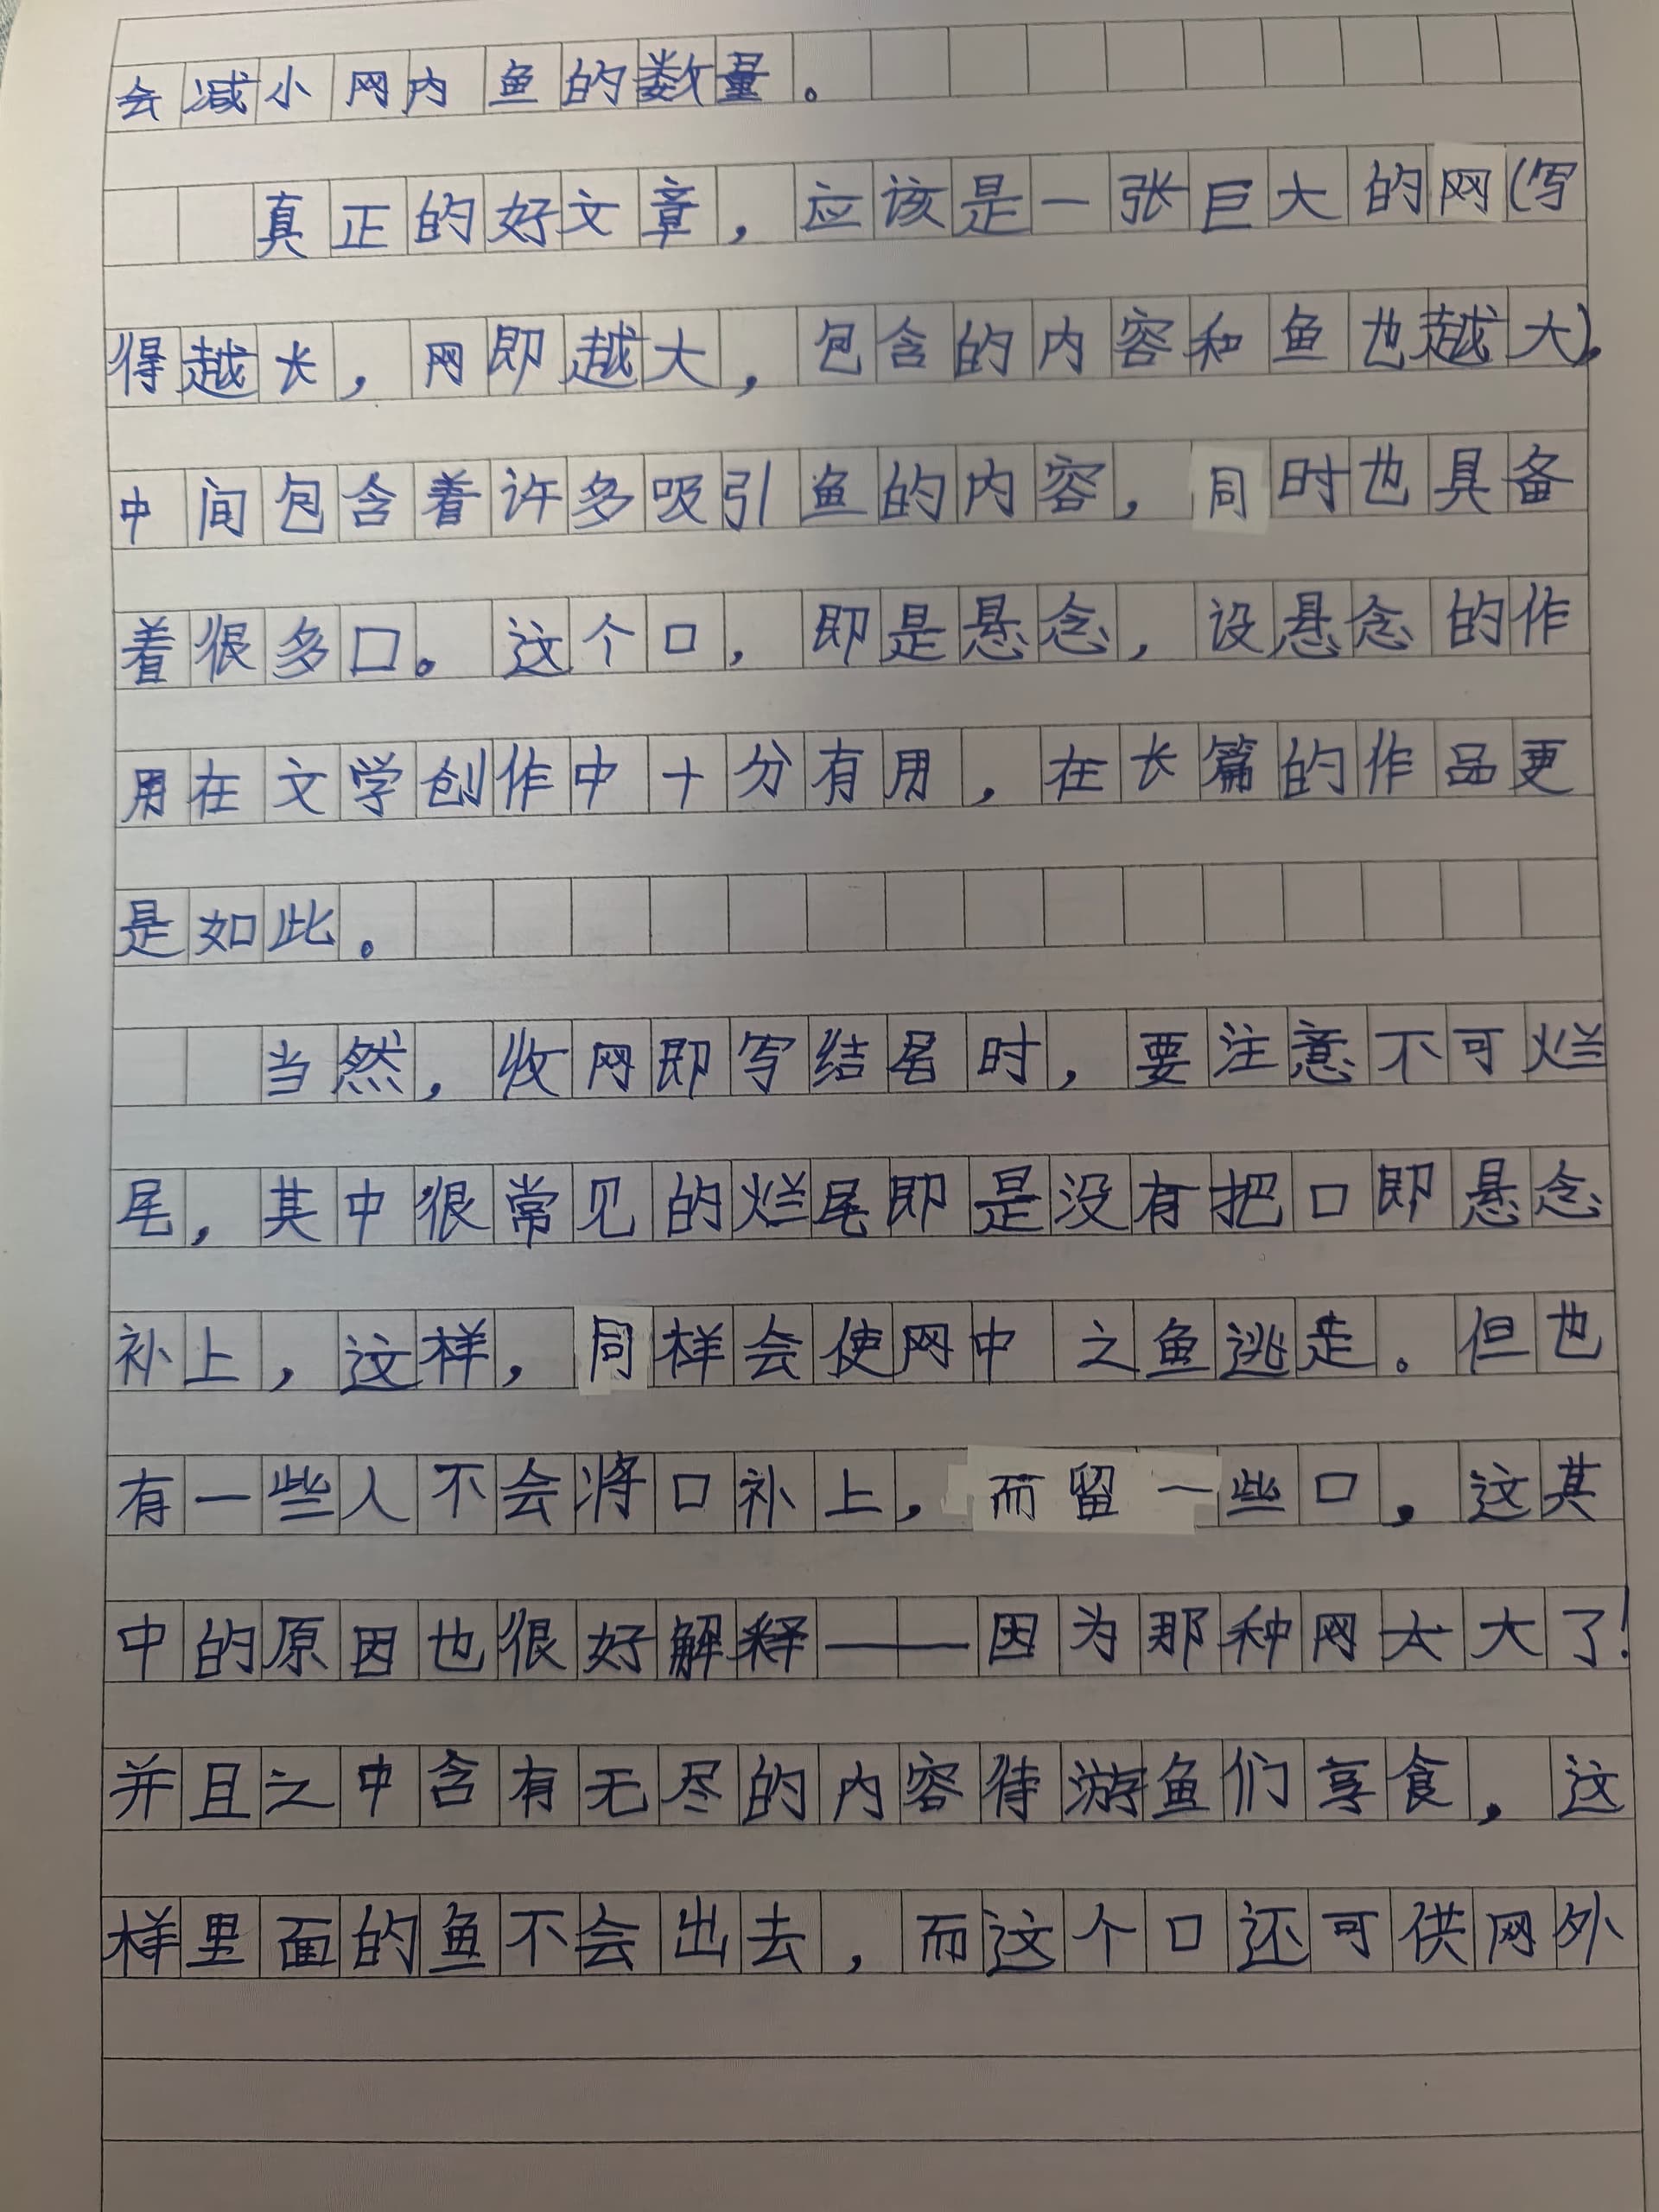 会减小网内鱼的数量。
真正的好文章，应该是一张巨大的网(写
得越长，网即越大，包含的内容和鱼也越大)，
中间包含着许多吸引鱼的内容，同时也具备
着很多口。这个口，即是悬念，设悬念的作
用在文学创作中十分有用，在长篇的作品更
是如此。
当然，收网即写结尾时，要注意不可烂
尾，其中很常见的烂尾即是没有把口即悬念
补上，这样，同样会使网中之鱼逃走。但也
有一些人不会将口补上，而留一些口，这其
中的原因也很好解释——因为那种网太大了！
并且之中含有无尽的内容待游鱼们享食，这
样里面的鱼不会出去，而这个口还可供网外